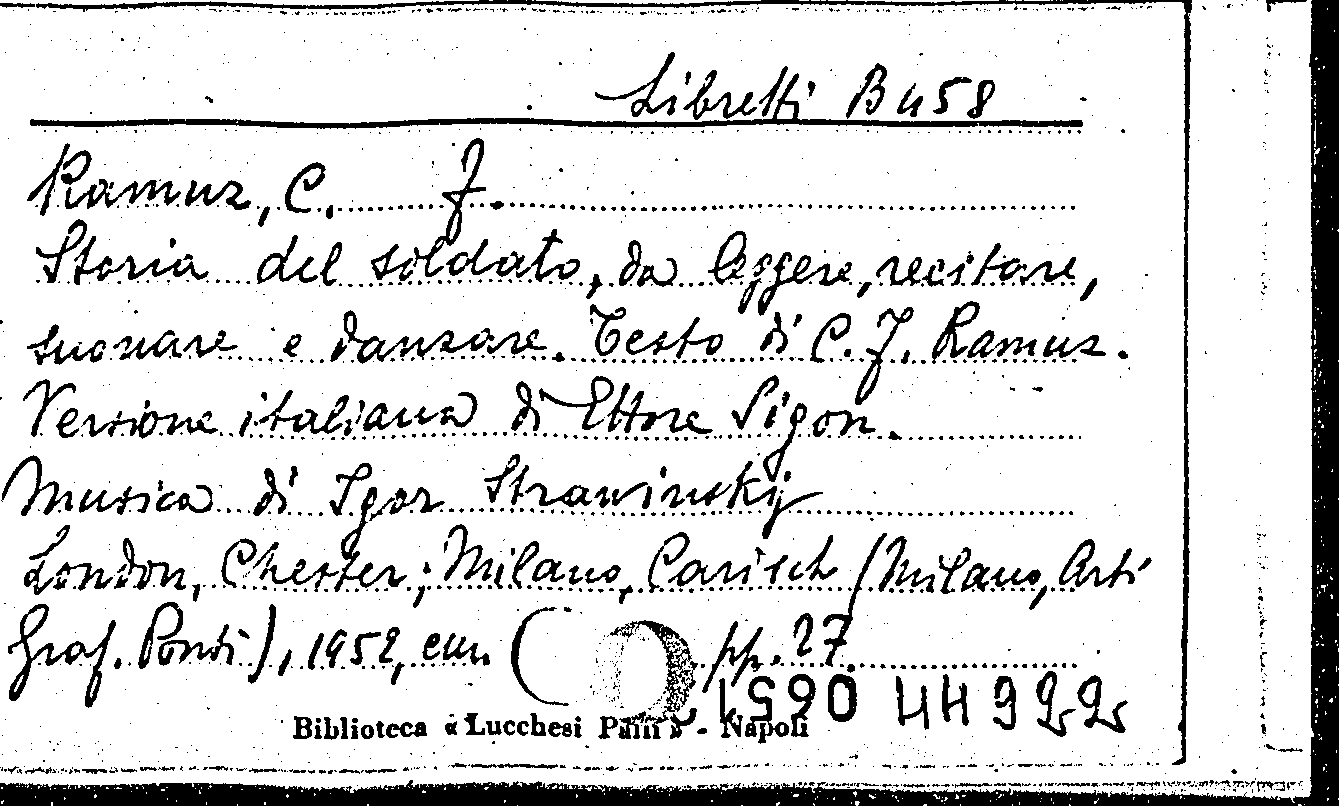 Libretti B 458
Ramuz, C. F.
Storia del soldato, da leggere, recitare,
suonare e danzare. Testo di C. F. Ramuz.
Versione italiana di Ettore Sigon.
Musica di Igor Strawinsky
London, Chester; Milano, Carisch (Milano, Arti
Graf. Ponti), 1952, cm. pp. 27.
Biblioteca « Lucchesi Palli » - Napoli